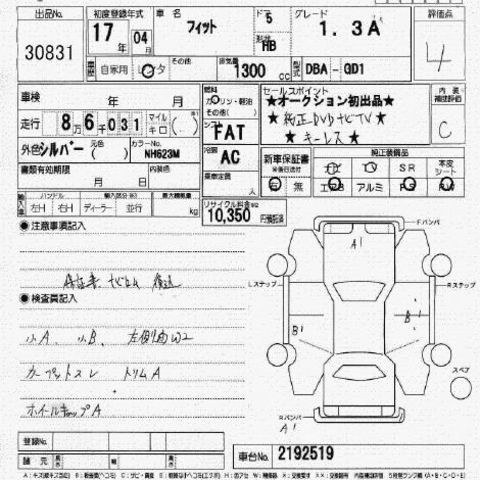 出品No. 30831
初度登録年式 17年 04月
車名 フィット
ドア 5
形状 HB
グレード 1.3A
評価点 4
車歴 自家用 レンタ その他
排気量 1300 cc
型式 DBA - GD1
車検 年 月
燃料 ガソリン・軽油 その他( )
セールスポイント
★オークション初出品★
★純正DVDナビTV★
★キーレス★
内装 補助評価 C
走行 8万6千031 マイル キロ ( )
シフト FAT
外色 シルバー 元色( )
カラーNo. NH623M
冷房 AC
新車保証書 有 無
純正装備品
SR 本皮シート
アルミ
書類有効期限 月 日
内装色
乗車定員 人
輸入車 ハンドル 左H 右H ディーラー 並行
最大積載量 kg
リサイクル料金 10,350 円預託済
●注意事項記入
保証書、ナビロム 後送
●検査員記入
小A、小B、左側面W2
カーペットスレ トリムA
ホイールキャップA
Fバンパ
A1
Lステップ
Rステップ
B1
B1
スペア
Rバンパ
A1
登録No.
諸元
車台No. 2192519